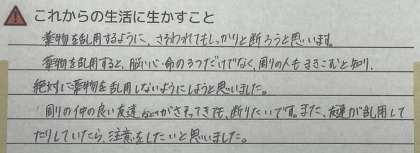 これからの生活に生かすこと
薬物を乱用するように、さそわれてもしっかりと断ろうと思います。
薬物を乱用すると、脳や心、命のそうだけでなく、周りの人もまきこむと知り、
絶対に薬物を乱用しないようにしようと思いました。
周りの仲の良い友達などがさそってきても、断りたいです。また、友達が乱用して
たりしていたら、注意をしたいと思いました。